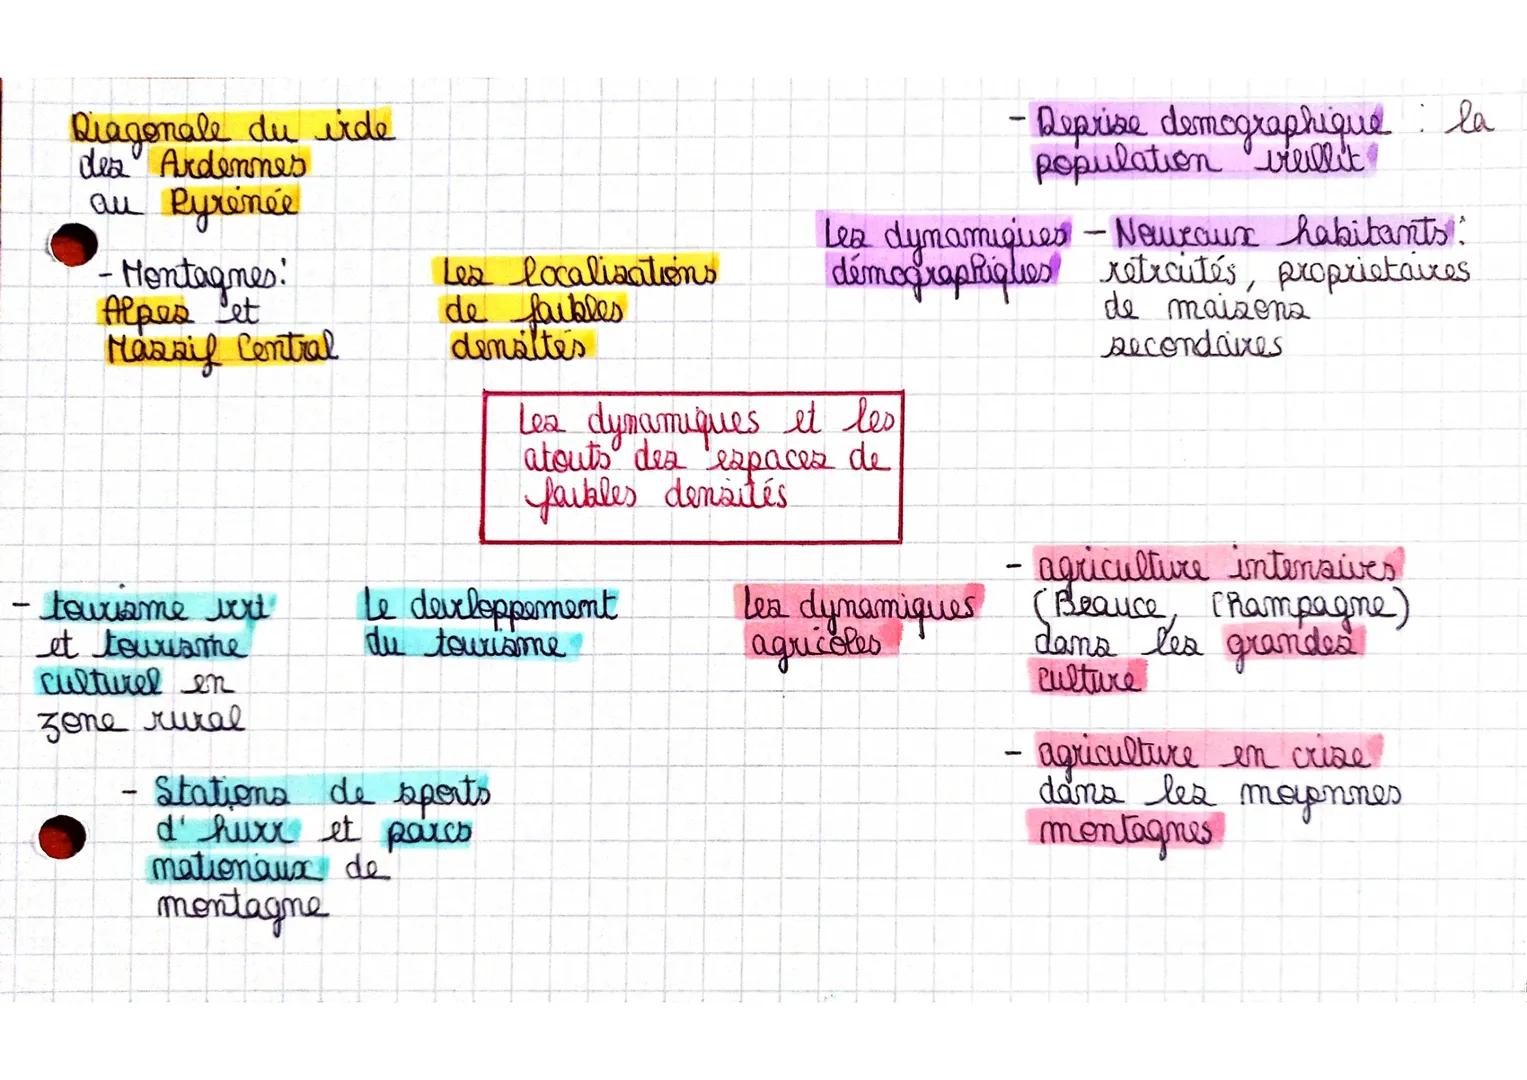 Diagonale du vide
des Ardennes
au Pyrénée
- Montagnes:
Alpes et
Massif Central
Les localisations
de faibles
densités
- Reprise demographique : la
population vieillit
Les dynamiques
démographiques
- Nouveaux habitants:
retraités, proprietaires
de maisons
secondaires
Les dynamiques et les
atouts des espaces de
faibles densités
- tourisme vert
et tourisme
culturel en
zone rural
Le developpement
du tourisme
- Stations de sports
d'hiver et parcs
nationaux de
montagne
Les dynamiques
agricoles
- agriculture intensives
(Beauce, Champagne)
dans les grandes
culture
- agriculture en crise
dans les moyennes
montagnes